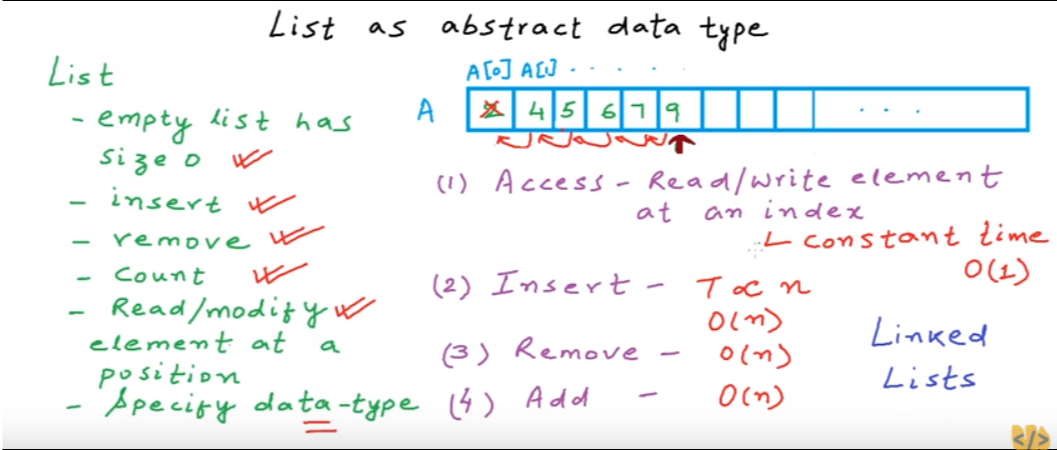 List as abstract data type
List
- empty list has
size 0
- insert
- remove
- count
- Read/modify
element at a
position
- specify data-type
A[0] A[1] . . . . .
A 2 4 5 6 7 9 . . .
(1) Access - Read/write element
at an index
constant time
O(1)
(2) Insert - T ∝ n
O(n)
(3) Remove - O(n)
(4) Add - O(n)
Linked
Lists
</>